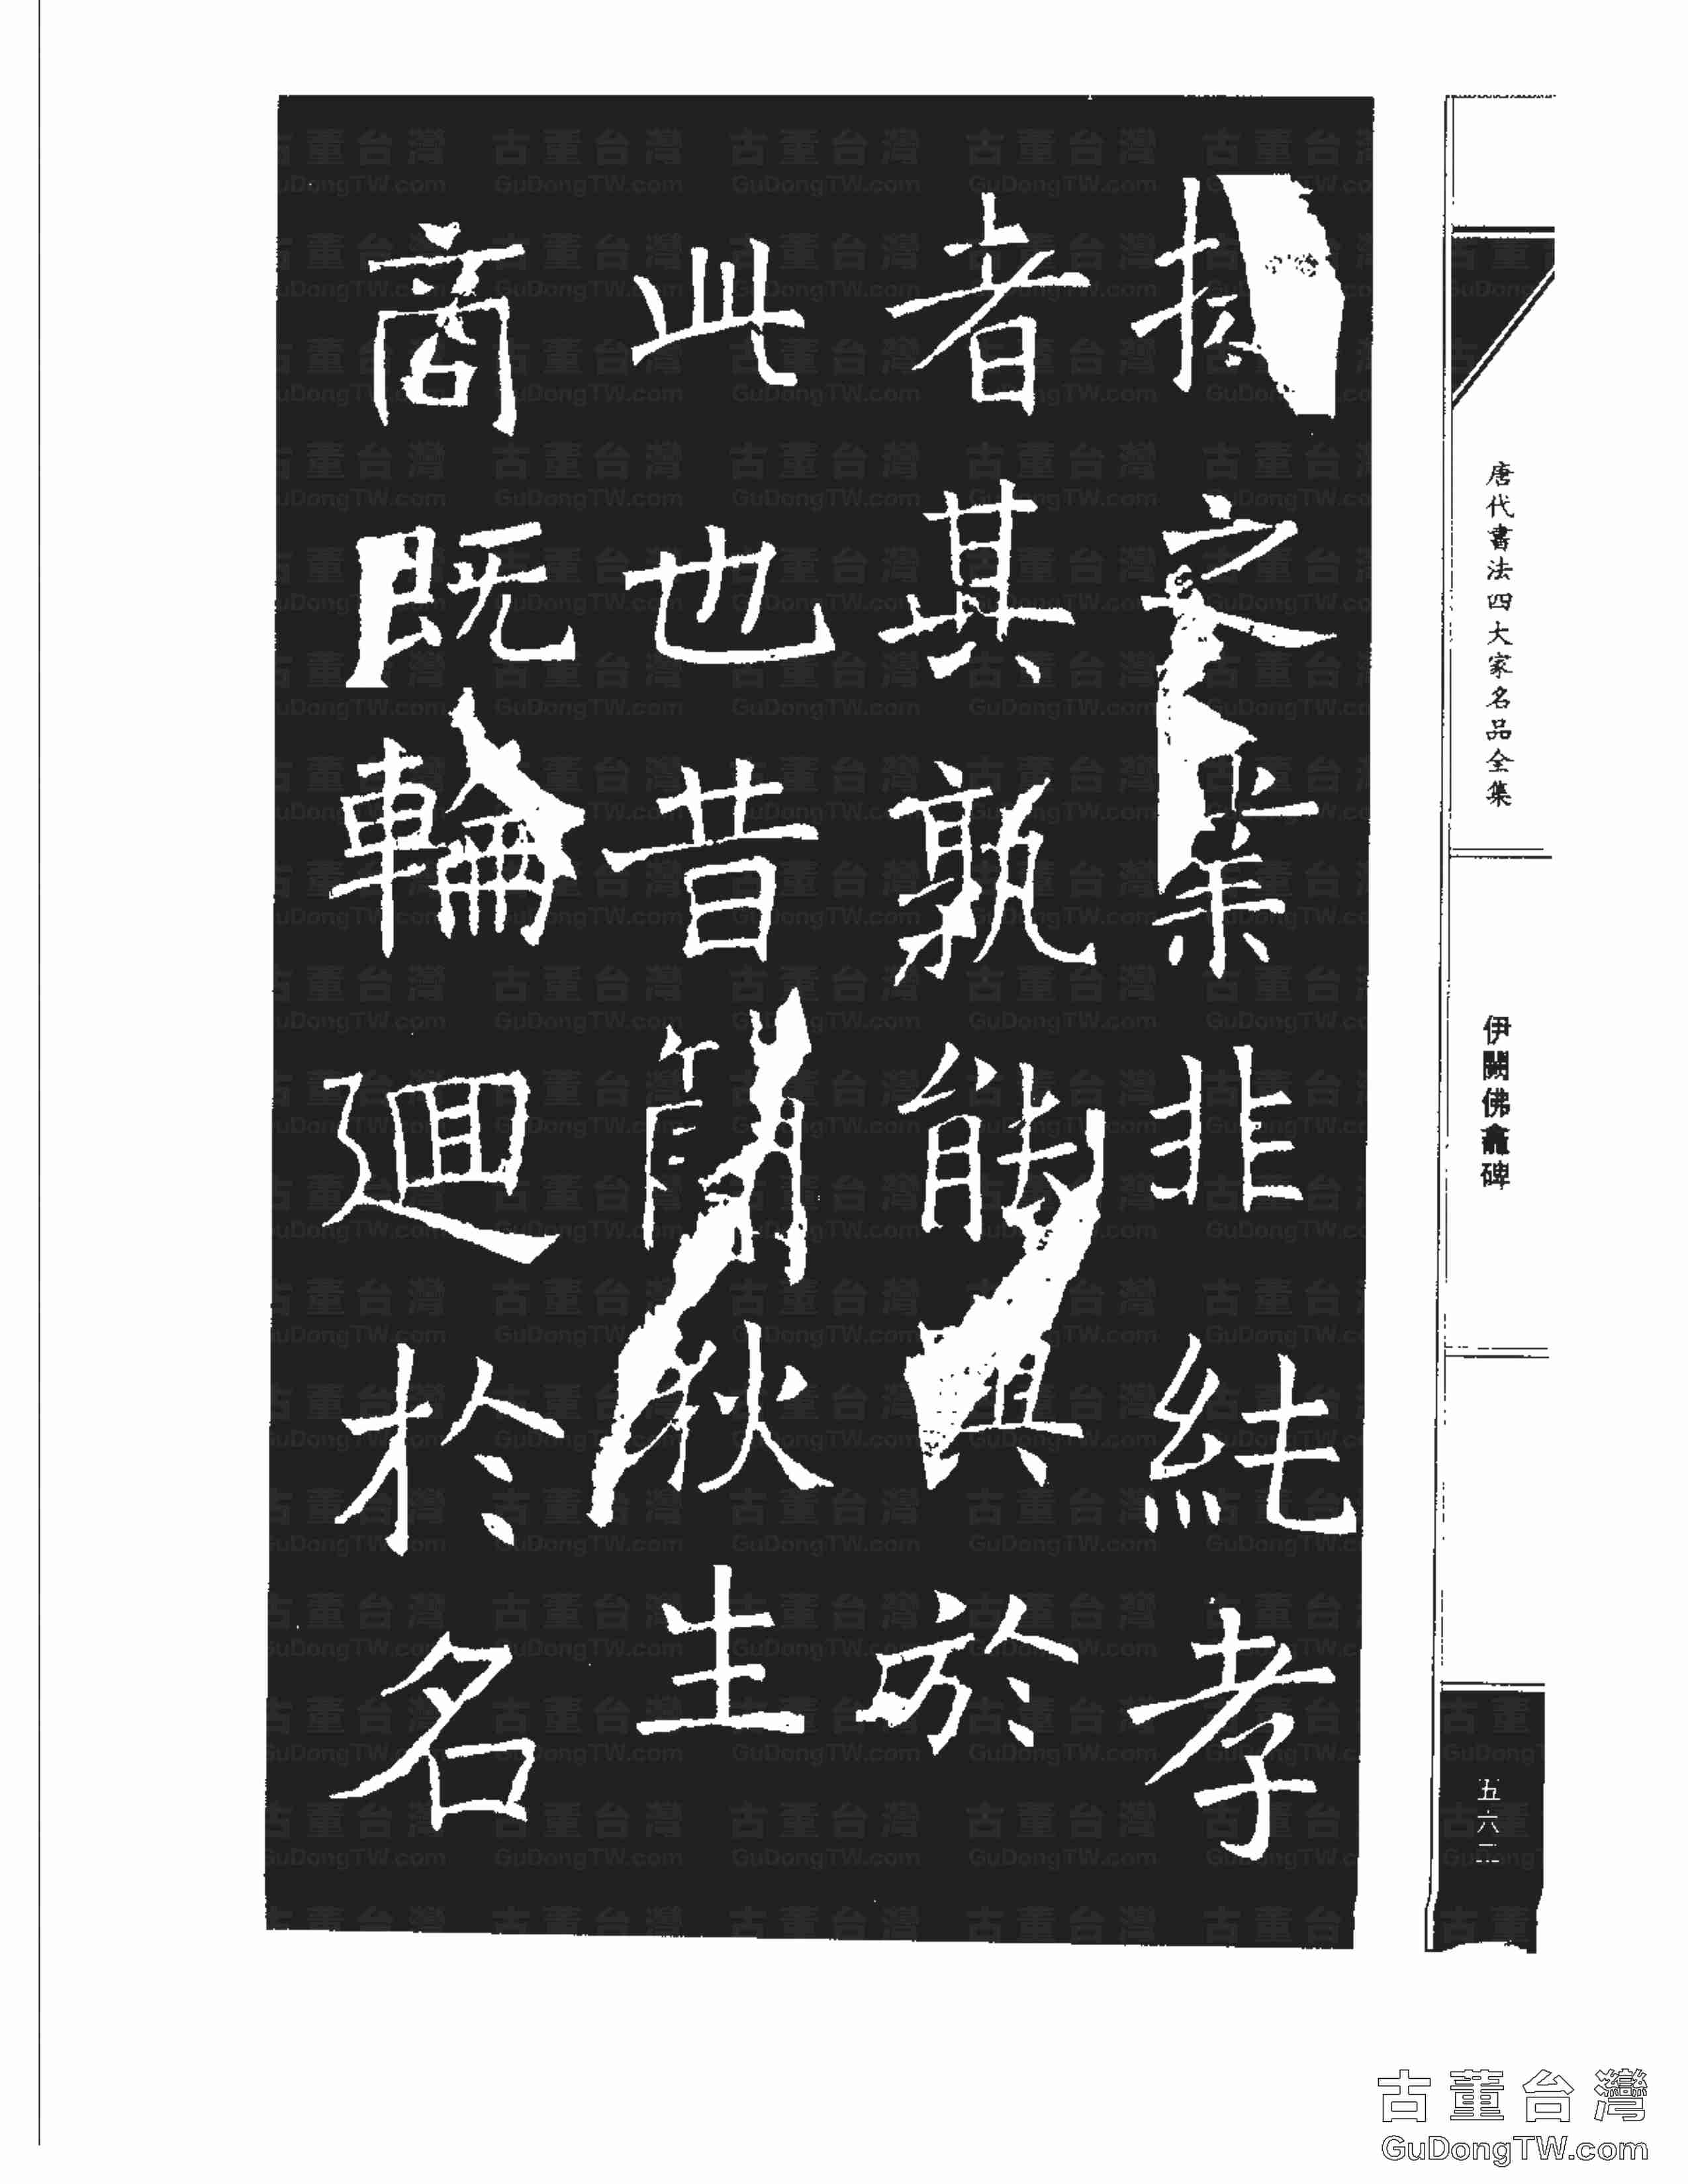 衆業非純孝
者其孰能與於
此也昔簡狄生
商既輪迴於名
唐代書法四大家名品全集
伊闕佛龕碑
五六二
古董台灣
GuDongTW.com